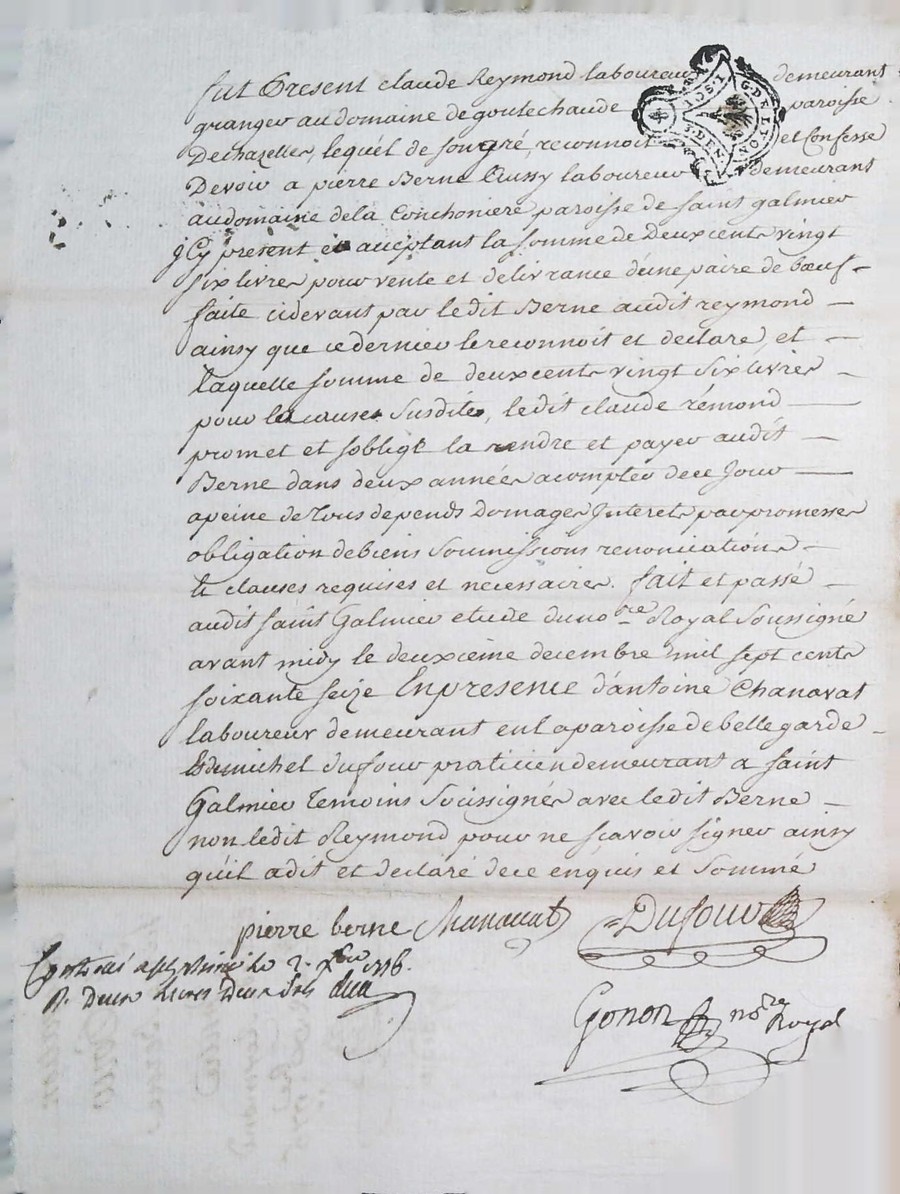 fut Present claude Reymond laboureur demeurant
granger au domaine de goutechaude paroisse
Dechazelles, lequel de son gré, reconnoit et Confesse
Devoir a pierre Berne Cussy laboureur demeurant
au domaine dela Conchoniere paroisse de saint galmier
jCy present et acceptant la somme de Deux cents vingt
six livres pour vente et delivrance d'une paire de bœufs
faite cidevant par ledit Berne audit reymond
ainsy que ce dernier le reconnoit et declare, et
laquelle somme de deux cents vingt six livres
pour les causes susdites, ledit claude rémond
promet et soblige la rendre et payer audit
Berne dans deux années a compter de ce Jour
apeine de tous depends Domages Interets par promesses
obligation debiens soumissions renonciations
& clauses requises et necessaires. fait et passé
audit saint Galmier etude du no.re Royal Soussigné
avant midy le deuxcieme decembre mil sept cents
soixante seize En presence d'antoine Chanavat
laboureur demeurant en la paroisse de bellegarde
& de michel dufour praticien demeurant a saint
Galmier temoins Soussignés avec ledit Berne
non ledit Reymond pour ne sçavoir signer ainsy
qu'il a dit et declaré de ce enquis et sommé
pierre berne Chanavat Dufour
le 2. Xbre 1776.
R. Deux livres Deux sols
Gonon nore Royal
G. DE LYON